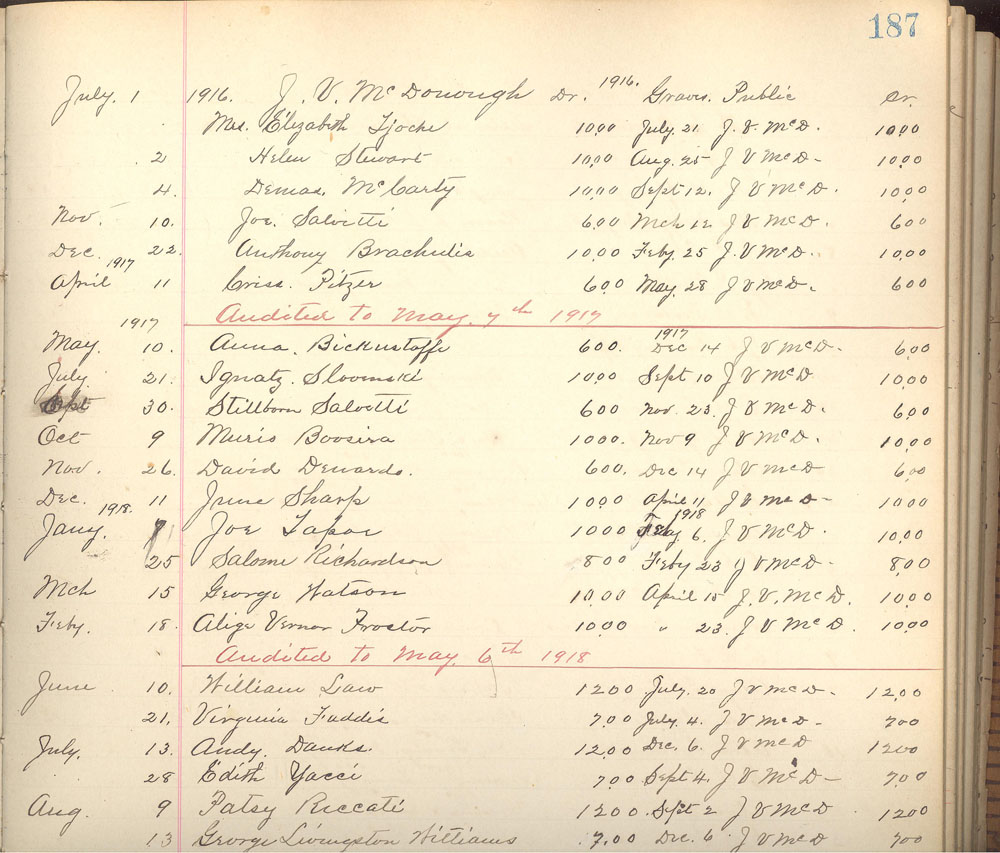 187
July. 1 1916. J. V. McDonough Dr. 1916. Graves. Public Cr.
Mrs. Elizabeth Tjoche 10.00 July. 21 J. V. McD. 10.00
2 Helen Stewart 10.00 Aug. 25 J V McD- 10.00
4. Demas. McCarty 10.00 Sept 12. J V McD. 10.00
Nov. 10. Joe. Salvitti 6.00 Mch 12 J V McD- 6.00
Dec. 22. Anthony Brachulis 10.00 Feby. 25 J. V McD. 10.00
1917
April 11 Criss. Pitzer 6.00 May. 28 J V McD. 6.00
Audited to May. 7th 1917
1917 1917
May. 10. Anna. Bickustaffe 6.00. Dec 14 J V McD- 6.00
July. 21. Ignatz. Slovenski 10.00 Sept 10 J V McD 10.00
Sept 30. Stillborn Salvitti 6.00 Nov. 23. J V McD. 6.00
Oct 9 Muris Boosira 10.00. Nov 9 J V McD. 10.00
Nov. 26. David Denardo. 6.00. Dec 14 J V McD 6.00
Dec. 11 June Sharp 10.00 April 11 J V McD- 10.00
1918. 1918
Jany. 7 Joe Tapar 10.00 6. J V McD. 10.00
25 Salome Richardson 8.00 Feby 23 J V McD. 8.00
Mch 15 George Watson 10.00 April 15 J. V. McD. 10.00
Feby. 18. Alige Vernor Proctor 10.00 " 23. J V McD. 10.00
Audited to May. 6th 1918
June 10. William Law 12.00 July. 20 J V McD- 12.00
21. Virginia Faddis 7.00 July. 4. J V McD- 7.00
July. 13. Andy. Danks. 12.00 Dec. 6. J V McD 12.00
28 Edith Yacci 7.00 Sept 4. J V McD- 7.00
Aug. 9 Patsy Riccati 12.00 Sept 2 J V McD 12.00
13 George Livingston Williams 7.00 Dec. 6 J V McD 7.00